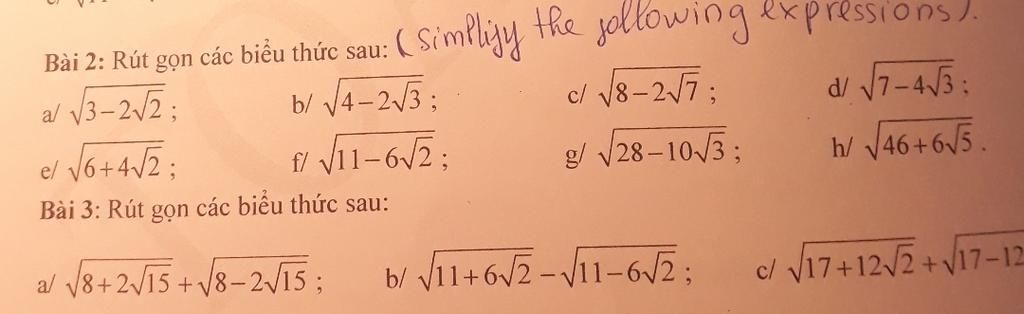 Bài 2: Rút gọn các biểu thức sau: (Simplify the following expressions).
a/ √(3−2√2) ; b/ √(4−2√3) ; c/ √(8−2√7) ; d/ √(7−4√3) ;
e/ √(6+4√2) ; f/ √(11−6√2) ; g/ √(28−10√3) ; h/ √(46+6√5) .
Bài 3: Rút gọn các biểu thức sau:
a/ √(8+2√15) + √(8−2√15) ; b/ √(11+6√2) − √(11−6√2) ; c/ √(17+12√2) + √(17−12